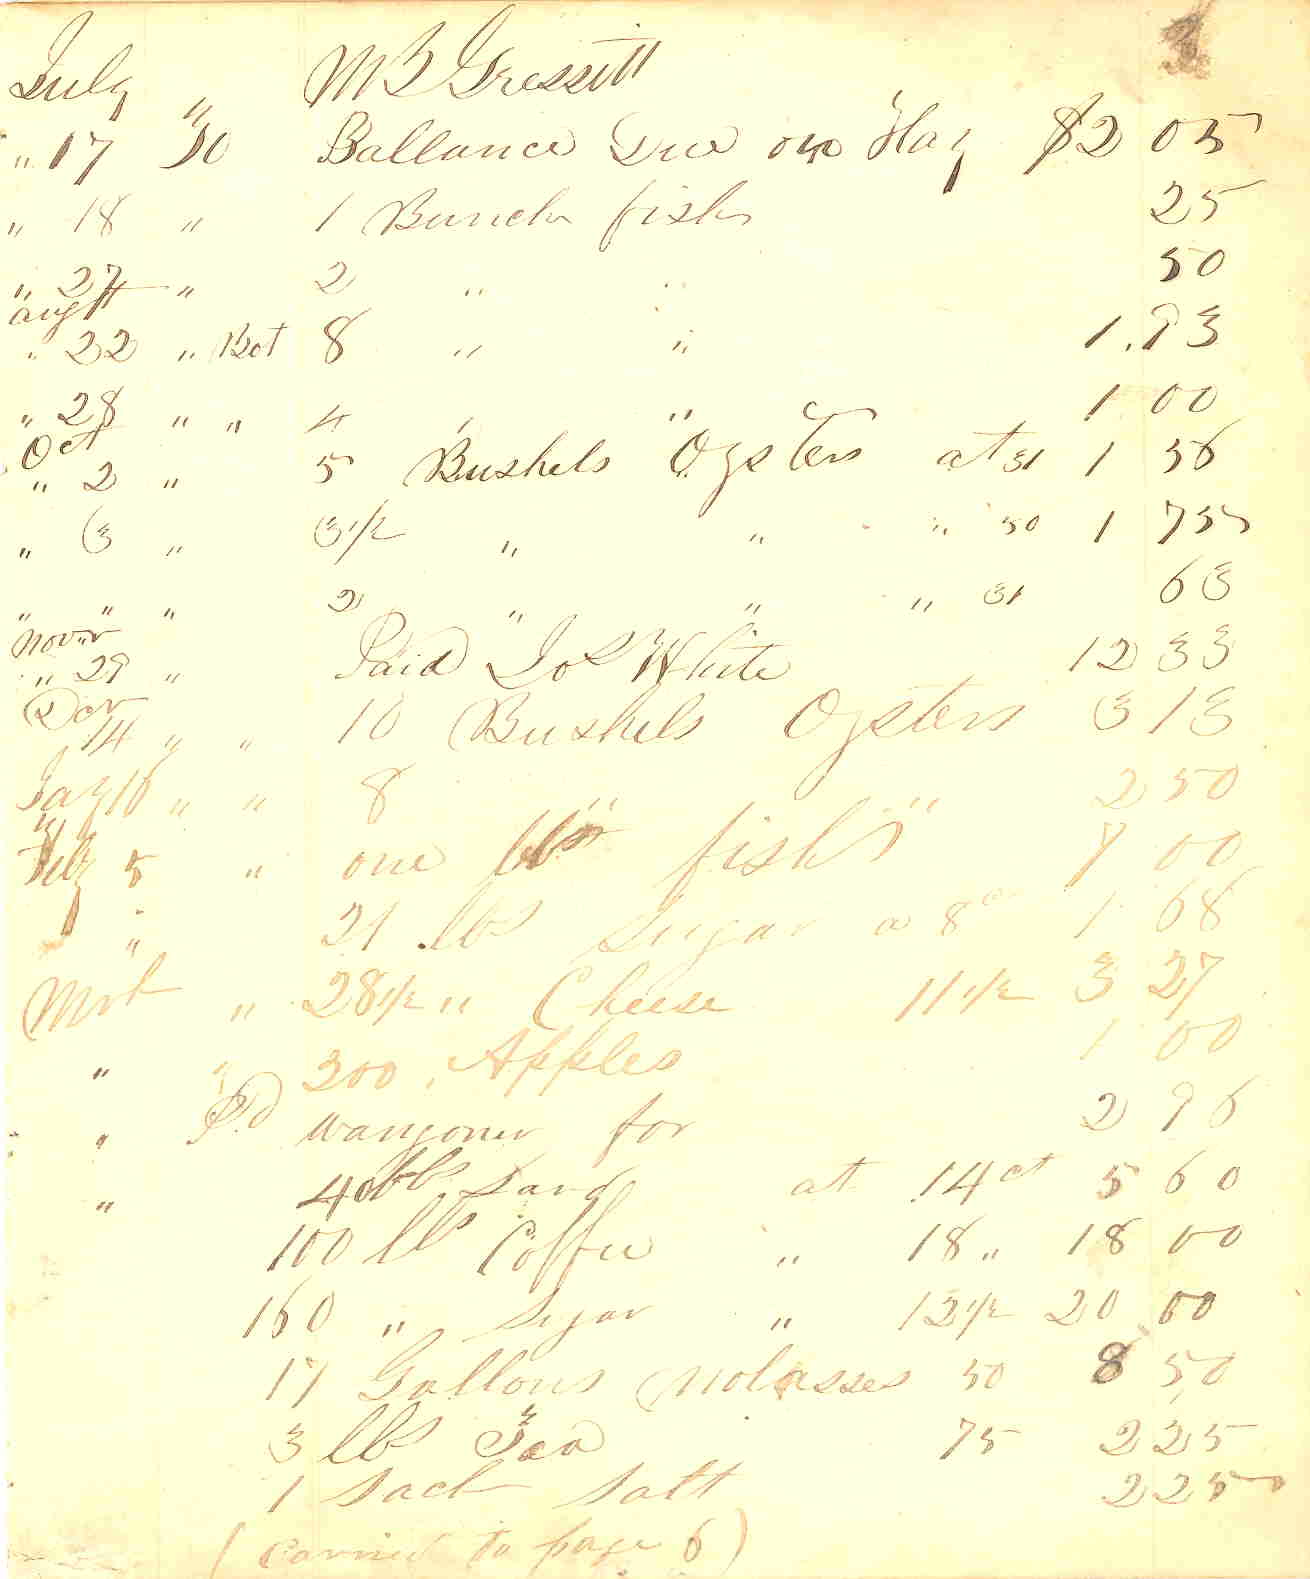 July " M B Gressitt
" 17 50 Ballance Due on Hay $2 05
" 18 " 1 Bunch fish 25
" 27 " 2 " " 50
augt
" 22 " Bot 8 " " 1.93
" 28 " " 4 " " 1 00
Oct
" 2 " 5 Bushels Oysters at 31 1 56
" 3 " 3 1/2 " " " 50 1 75
" " " 2 " " " 31 63
Novr
" 29 " Paid Jos White 12 33
Der
14 " " 10 Bushels Oysters 3 13
Jay 16 " " 8 " " 2 50
Feby 5 " one bbs fish 7 00
" 21 lbs Sugar a 8c 1 68
Mrh " 28 1/2 " Cheese 11 1/2 3 27
" " 300 Apples 1 00
" Pd waggoner for 2 96
" 40 lbs Lard at 14 ct 5 60
100 lbs Coffee " 18 " 18 00
160 " Sugar " 12 1/2 20 00
17 Gallons Molasses 50 8 50
3 lbs Tea 75 2 25
1 Sack Salt 2 25
(Carried to page 6)